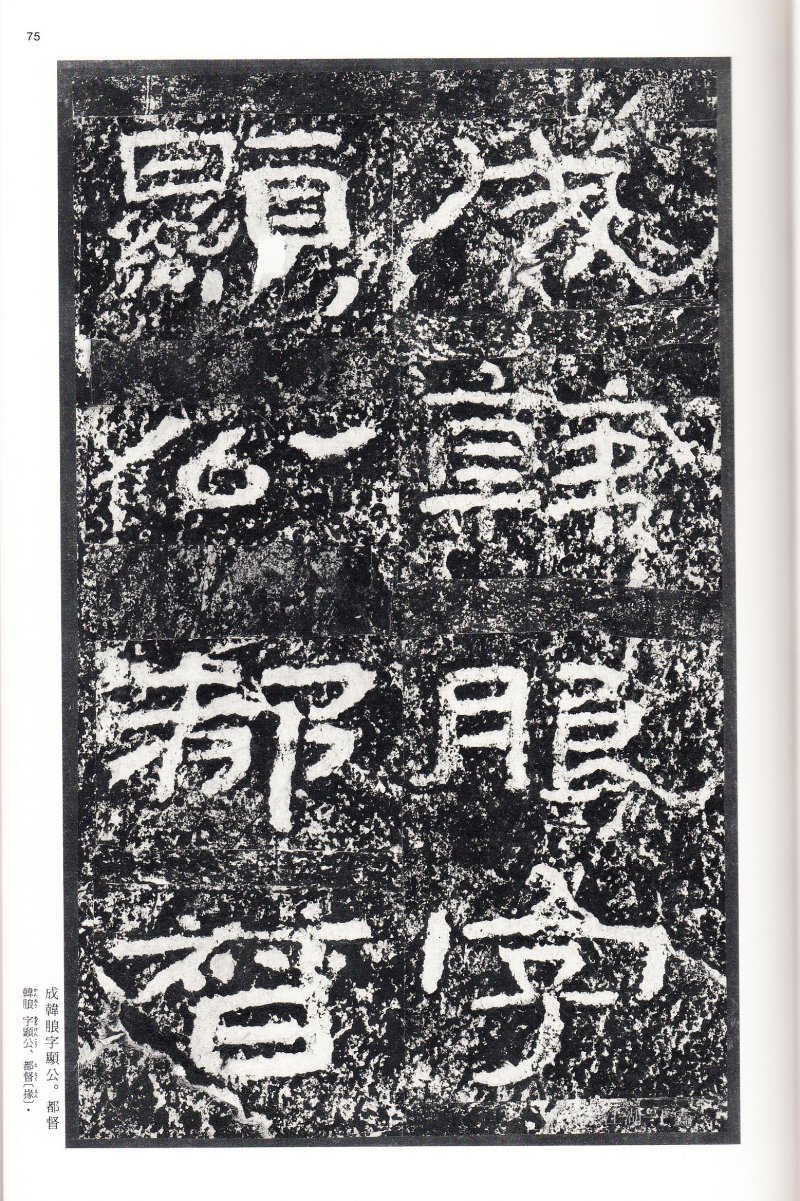 75
成韓朖字
顯公都督
成韓朖字顯公。都督
韓朖字顯公、都督〔掾〕・